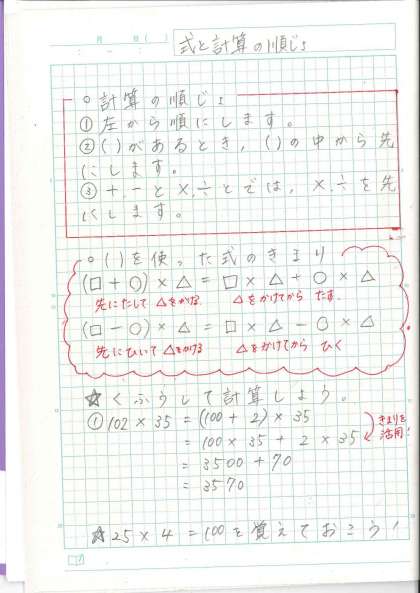 月 日( )
式と計算の順じょ
○計算の順じょ
①左から順にします。
②( )があるとき、( )の中から先
にします。
③+、-と×、÷とでは、×、÷を先
にします。
○( )を使った式のきまり
(□+○)×△=□×△+○×△
先にたして△をかける △をかけてから たす。
(□-○)×△=□×△-○×△
先にひいて△をかける △をかけてから ひく
☆くふうして計算しよう。
①102×35=(100+2)×35
=100×35+2×35
きまりを
活用!
=3500+70
=3570
☆25×4=100を覚えておこう!